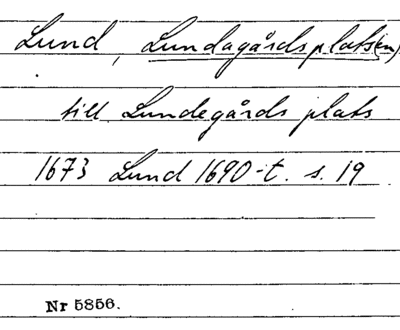 Lund, Lundagårdsplats(en)
till Lundegårds plats
1673 Lund 1690-t. s. 19
Nr 5856.